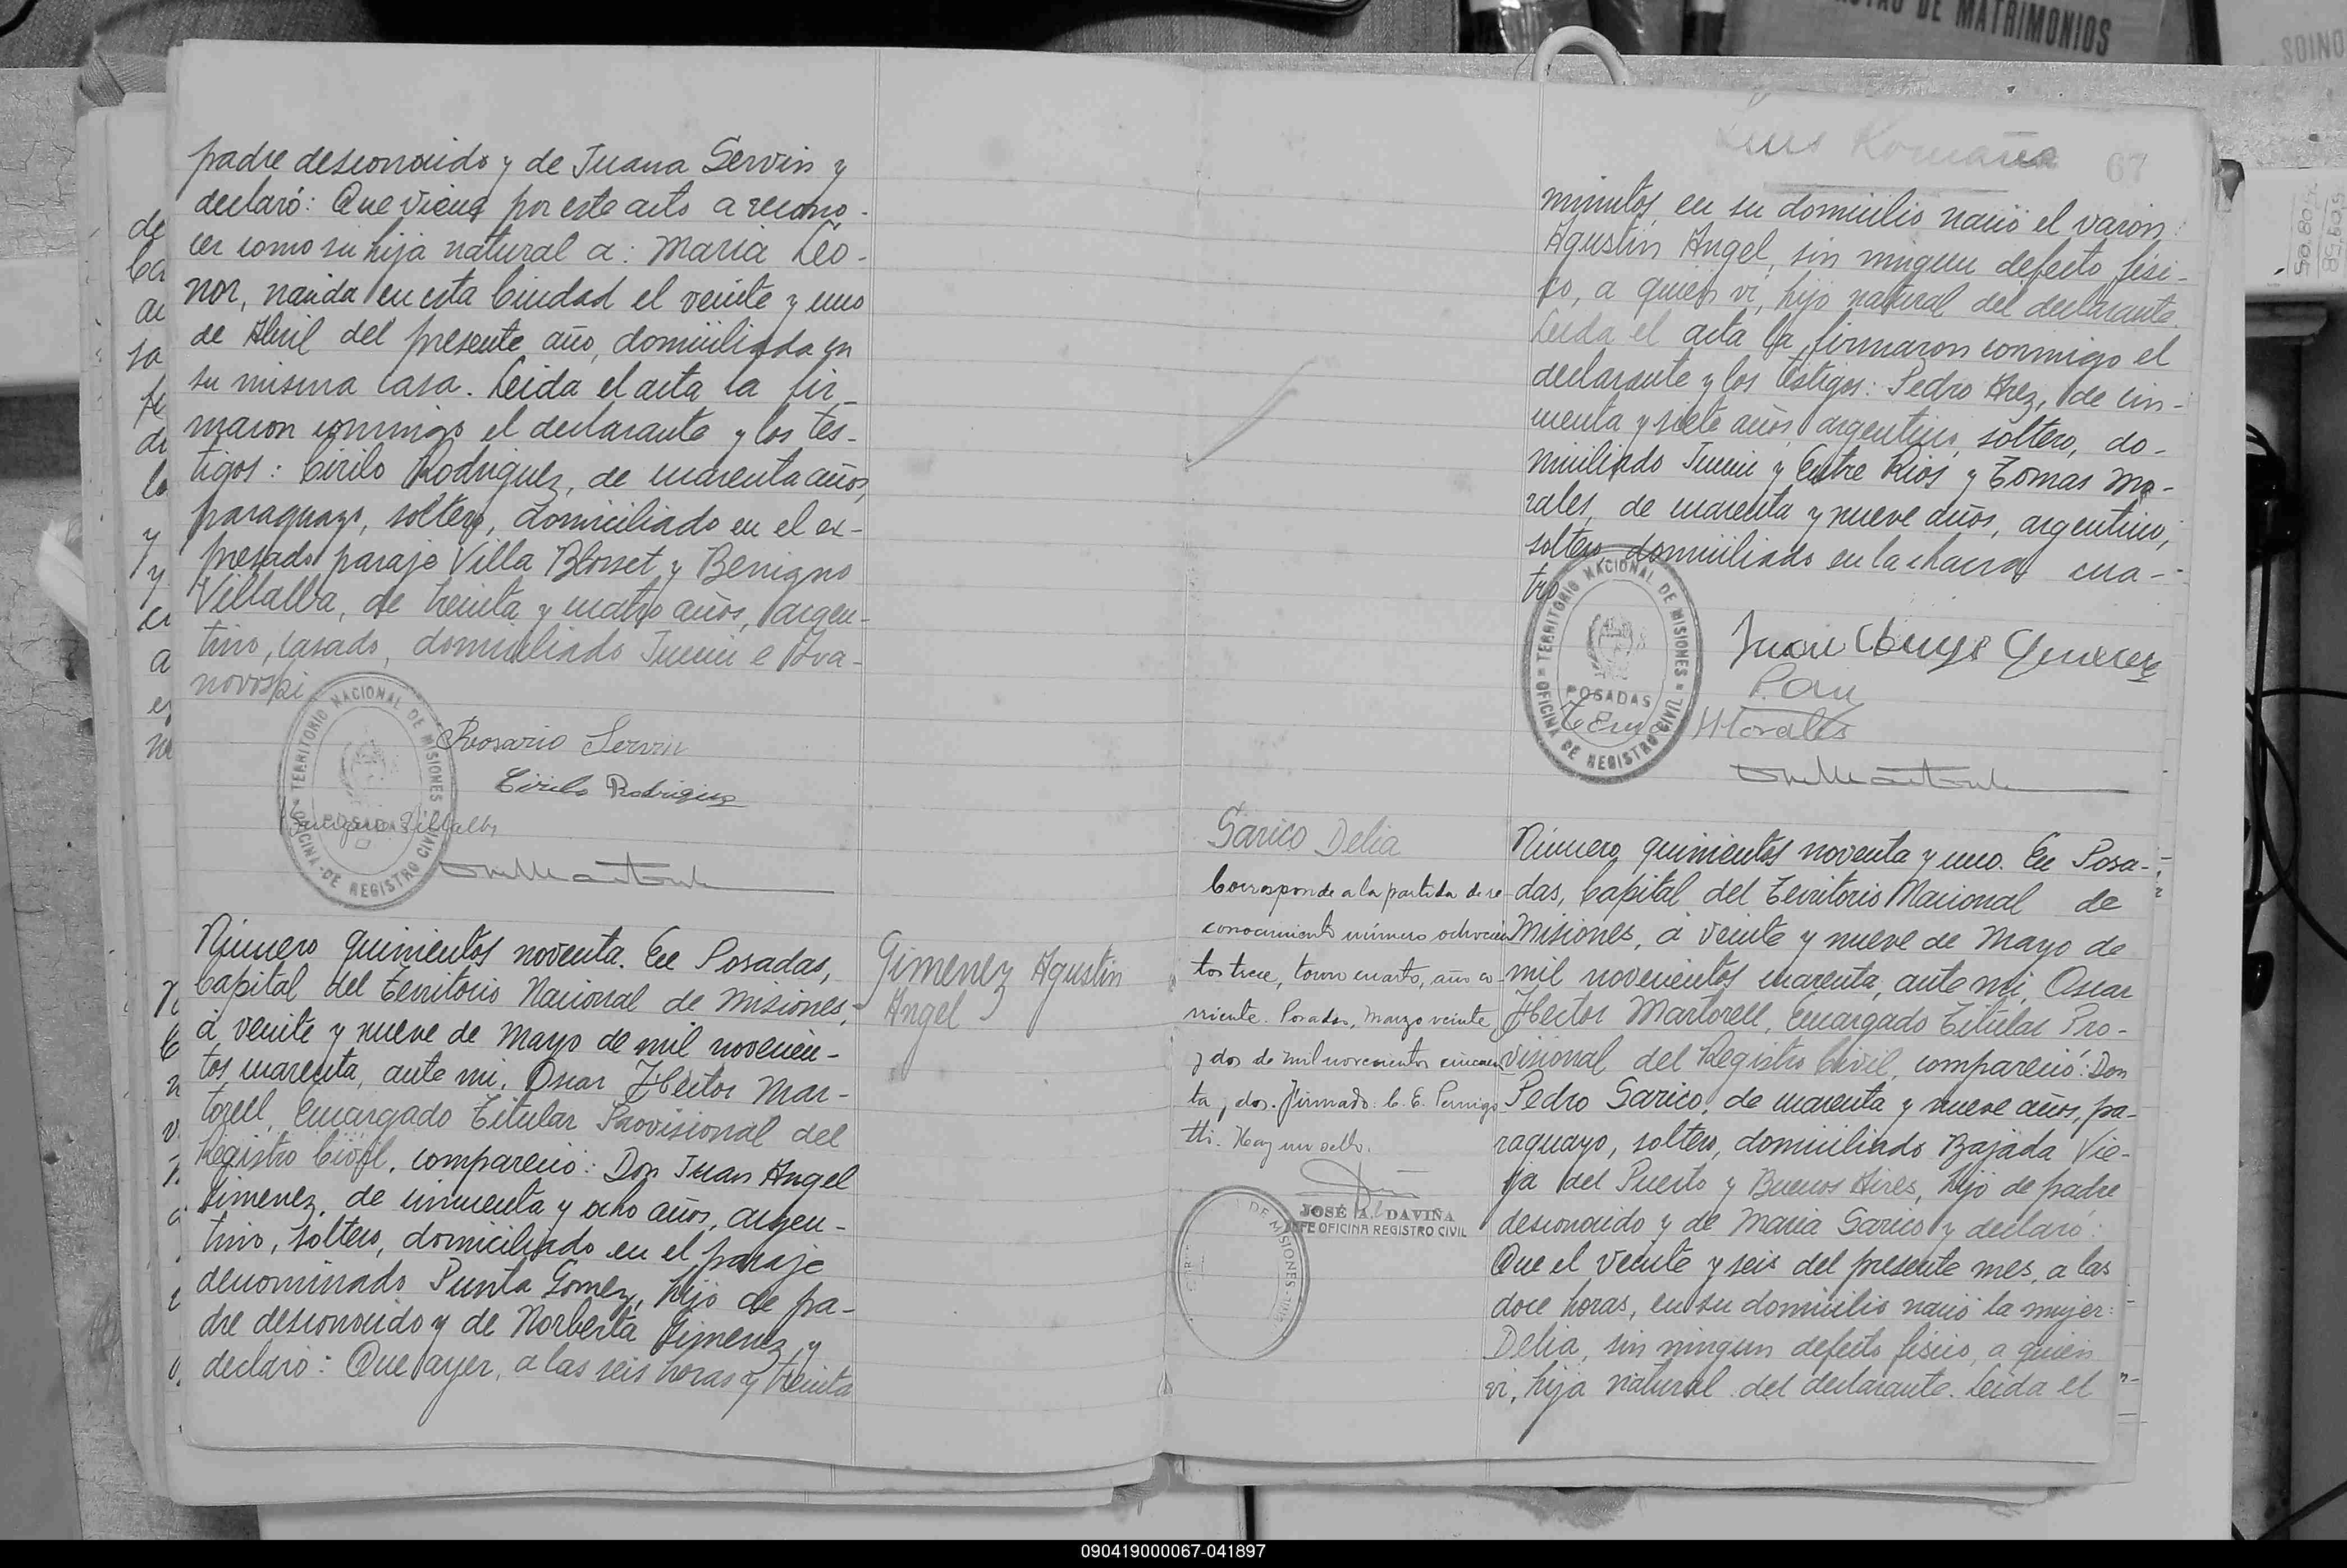 padre desconocido y de Juana Servin y
declaró: Que viene por este acto a recono-
cer como su hija natural a: Maria Leo-
nor, nacida en esta Ciudad el veinte y uno
de Abril del presente año, domiciliada en
su misma casa. Leida el acta la fir-
maron conmigo el declarante y los tes-
tigos: Cirilo Rodriguez, de cuarenta años,
paraguayo, soltero, domiciliado en el ex-
presado paraje Villa Blosset y Benigno
Villalba, de treinta y cuatro años, argen-
tino, casado, domiciliado Junin e Iva-
novoski
TERRITORIO NACIONAL DE MISIONES
OFICINA DE REGISTRO CIVIL
POSADAS
Rosario Servin
Cirilo Rodriguez
Villalba
Número quinientos noventa. En Posadas,
Capital del Territorio Nacional de Misiones,
á veinte y nueve de Mayo de mil novecien-
tos cuarenta, ante mi, Oscar Hector Mar-
torell, Encargado Titular Provisional del
Registro Civil, compareció: Don Juan Angel
Gimenez, de cincuenta y ocho años, argen-
tino, soltero, domiciliado en el paraje
denominado Punta Gomez, hijo de pa-
dre desconocido y de Norberta Gimenez, y
declaró: Que ayer, a las seis horas y treinta
Gimenez Agustin
Angel
Luis Romaña
67
minutos, en su domicilio nació el varón:
Agustin Angel, sin ningun defecto fisi-
co, a quien vi, hijo natural del declarante.
Leida el acta la firmaron conmigo el
declarante y los testigos: Pedro Arez, de cin-
cuenta y siete años, argentino, soltero, do-
miciliado Junin y Entre Rios y Tomas Mo-
rales, de cuarenta y nueve años, argentino,
soltero, domiciliado en la chacra cua-
tro
TERRITORIO NACIONAL DE MISIONES
OFICINA DE REGISTRO CIVIL
POSADAS
Juan Angel Gimenez
Morales
Sarico Delia
Corresponde a la partida de re-
conocimiento número ochocien
tos trece, tomo cuarto, año co-
rriente. Posadas, Marzo veinte
y dos de mil novecientos cincuen
ta y dos. Firmado: C. E. Pernigo
tti. Hay un sello.
JOSÉ A. DAVIÑA
JEFE OFICINA REGISTRO CIVIL
DE MISIONES
Número quinientos noventa y uno. En Posa-
das, Capital del Territorio Nacional de
Misiones, á veinte y nueve de Mayo de
mil novecientos cuarenta, ante mi, Oscar
Hector Martorell, Encargado Titular Pro-
visional del Registro Civil, compareció: Don
Pedro Sarico, de cuarenta y nueve años, pa-
raguayo, soltero, domiciliado Bajada Vie-
ja del Puerto y Buenos Aires, hijo de padre
desconocido y de Maria Sarico y declaró:
Que el veinte y seis del presente mes, a las
doce horas, en su domicilio nació la mujer:
Delia, sin ningun defecto fisico, a quien
vi, hija natural del declarante. Leida el
DE MATRIMONIOS
090419000067-041897